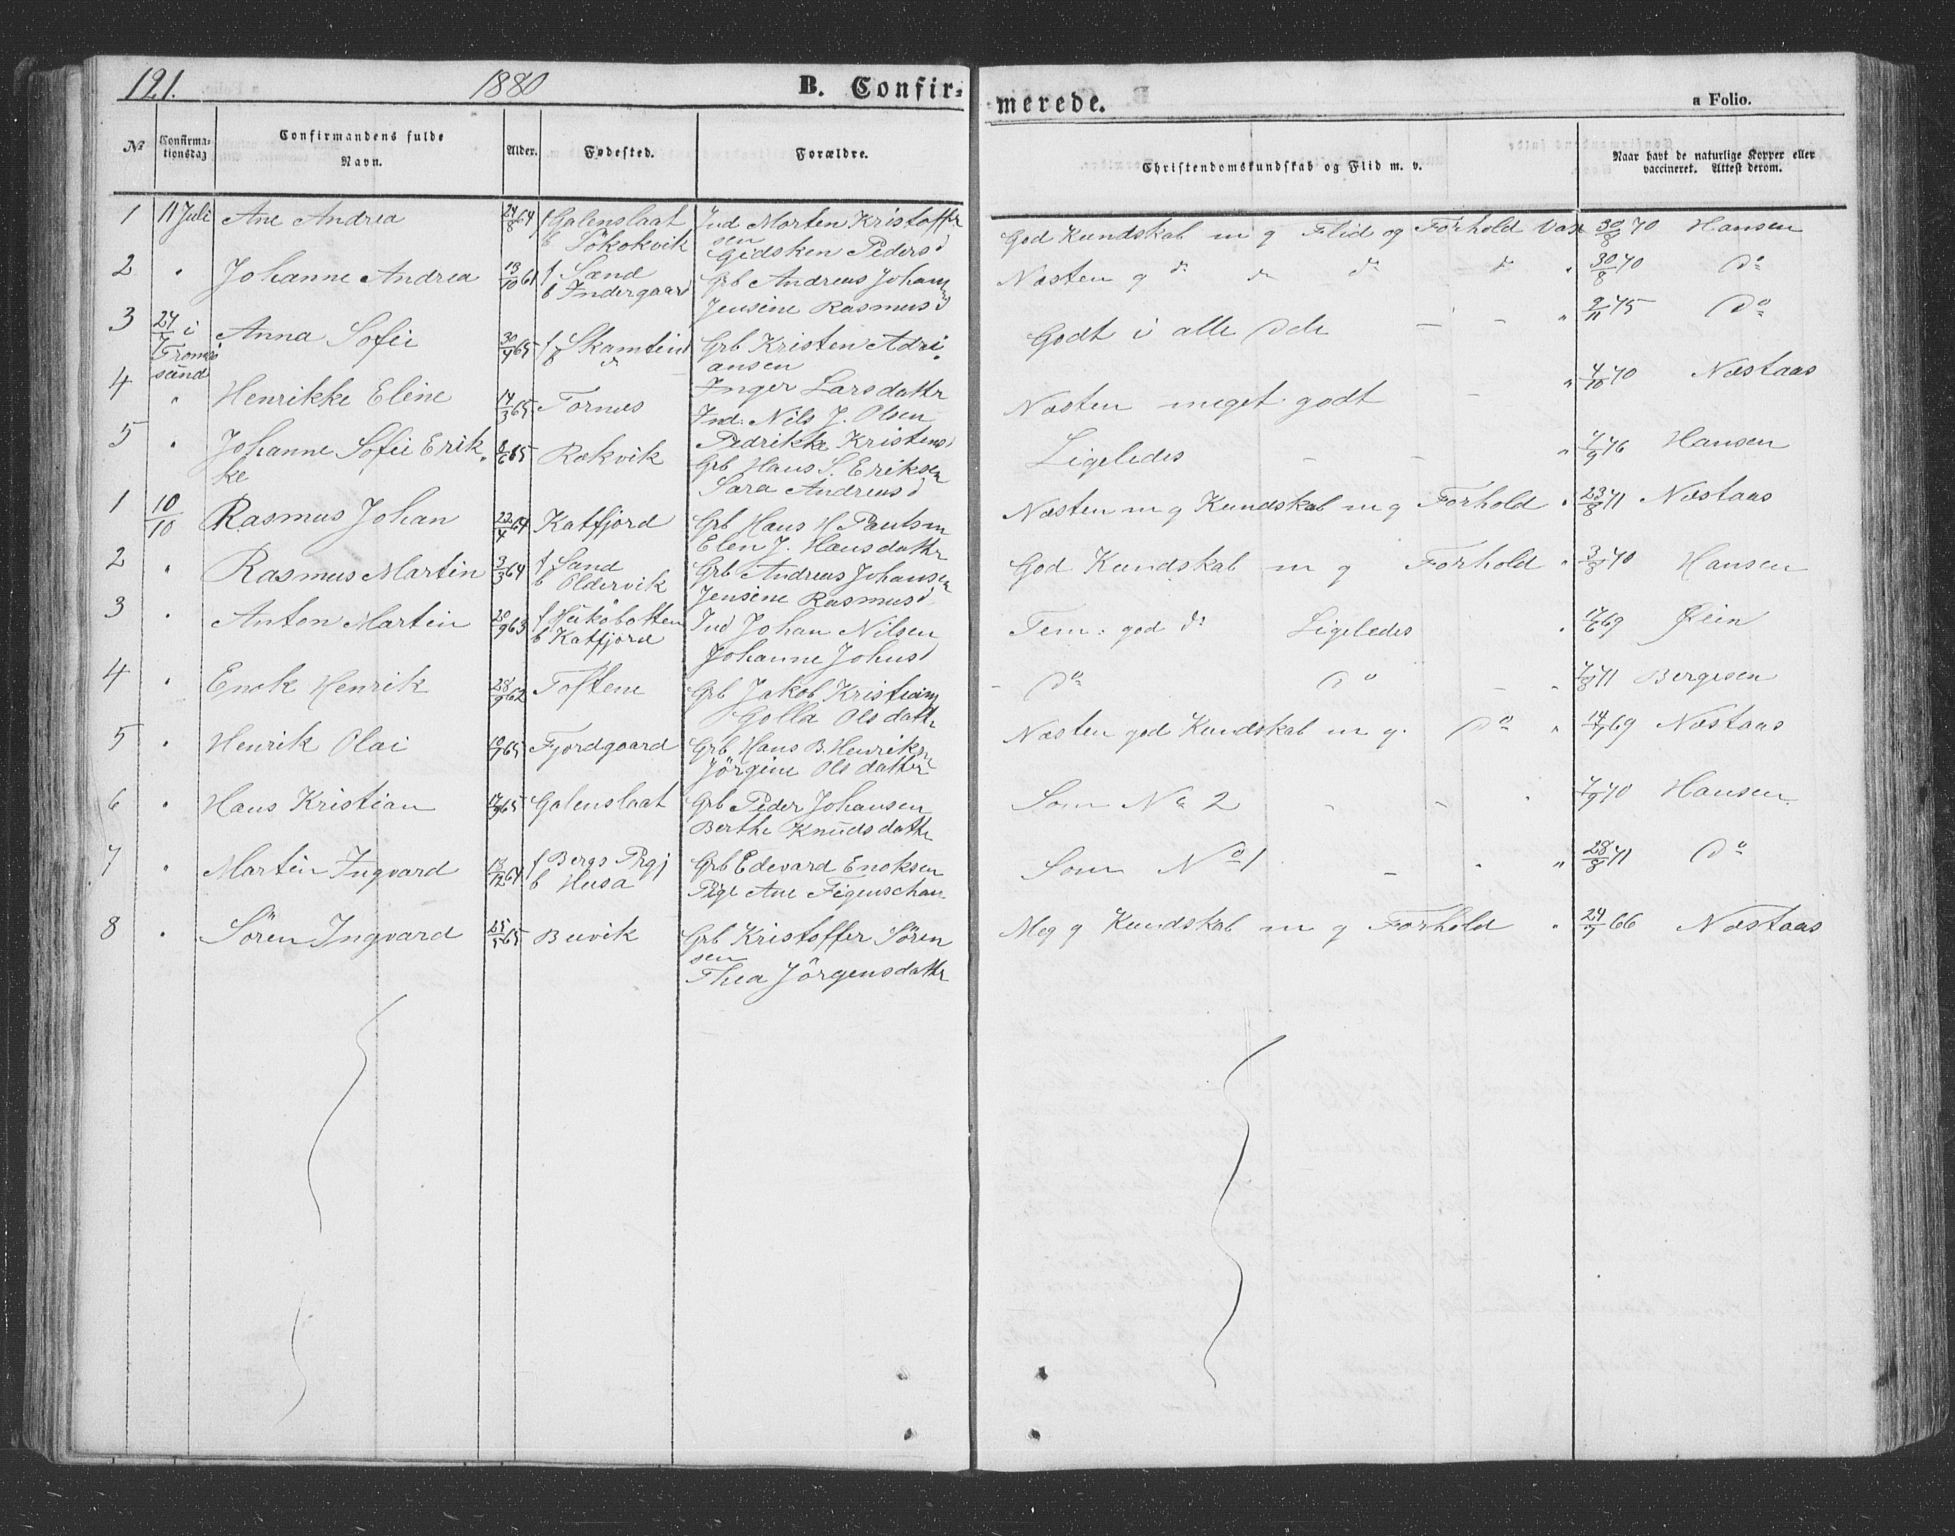 121. 1880 B. Confirmerede. a Folio.
No Confirmationsdag Confirmandens fulde Navn. Alder. Fødested. Forældre. Christendomskundskab og Flid m. v. Naar havt de naturlige Kopper eller vaccineret. Attest derom.
1 11 Juli Ane Andrea 24/8 64 f Galenslaat Ind Morten Kristoffer God Kundskab m g Flid og Forhold Vax 30/8 70 Hansen
b Tökokvik sen Gidsken Pedersd
2 " Johanne Andrea 13/10 61 f Sand Grb Andreas Johan Næsten g do " do " " 30/8 70 do
b Indergaard Jensine Rasmusd
3 24/7 i Anna Sofie 30/4 65 f Skamtind Grb Kristen Adri Godt i alle Dele - - " 2/11 75 do
Tromsö b " ansen
sund Inger Larsdattr
4 " Henrikke Eline 14/3 65 Tornes Ind. Nils J. Olsen Næsten meget godt - " 4/10 70 Næstaas
Pedrikke Kristensd
5 " Johanne Sofie Erik 8/6 65 Rekvik Grb Hans S. Eriksen Ligeledes - - " 4/9 76 Hansen
ke Sara Andreasd
1 10/10 Rasmus Johan 22/4 64 Katfjord Grb Hans H Paulsen Næsten m g Kundskab m g Forhold " 23/8 71 Næstaas
Elen J. Hansdattr
2 " Rasmus Martin 3/3 64 f Sand Grb Andreas Johansen God Kundskab m g Forhold " 3/8 70 Hansen
b Oldervik Jensine Rasmusd
3 " Anton Martin 20/9 63 f Hakobotten Ind Johan Nilsen Tem: god do Ligeledes " 17/6 69
b Katfjord Johanne Johnsd
4 " Enok Henrik 28/9 62 Toftene Grb Jakob Kristian - do do - " 7/8 71 Bergesen
Golla Olsdattr
5 " Henrik Olai 10/7 65 Fjordgaard Grb Hans B. Henriksn Næsten god Kundskab m g. do " 14/7 69 Næstaas
Jörgine Olsdatter
6 " Hans Kristian 17/9 65 Galenslaat Grb Peder Johansen Som No 2 - - " 7/9 70 Hansen
Berthe Knudsdattr
7 " Martin Ingvard 13/12 64 f Bergs Prgj Grb Edevard Enoksen Som No 1 - " " 28/8 71 do
b Husa Pige Ane Figenschau
8 " Sören Ingvard 25/5 65 Buvik Grb Kristoffer Sören Meg g Kundskab m g Forhold " 24/7 66 Næstaas
sen
Thea Jörgensdattr